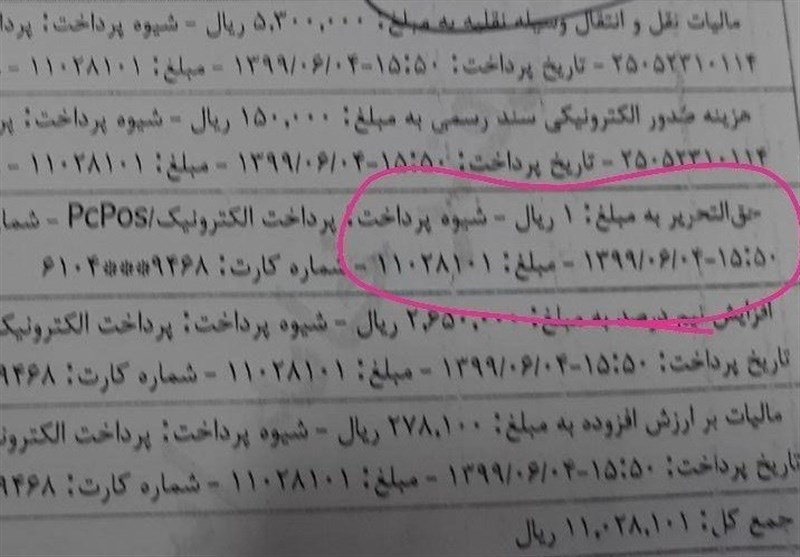 مالیات نقل و انتقال وسیله نقلیه به مبلغ: ۵,۳۰۰,۰۰۰ ریال - شیوه پرداخت:
۲۵۰۵۲۳۱۰۱۱۴ - تاریخ پرداخت: ۱۵:۵۰-۱۳۹۹/۰۶/۰۴ - مبلغ: ۱۱۰۲۸۱۰۱ -
هزینه صدور الکترونیکی سند رسمی به مبلغ: ۱۵۰,۰۰۰ ریال - شیوه پرداخت:
۲۵۰۵۲۳۱۰۱۱۴ - تاریخ پرداخت: ۱۵:۵۰-۱۳۹۹/۰۶/۰۴ - مبلغ: ۱۱۰۲۸۱۰۱ -
حق‌التحریر به مبلغ: ۱ ریال - شیوه پرداخت: پرداخت الکترونیک/PcPos -
۱۵:۵۰-۱۳۹۹/۰۶/۰۴ - مبلغ: ۱۱۰۲۸۱۰۱ - شماره کارت: ۶۱۰۴***۹۴۶۸
افزایش نیم درصد به مبلغ: ۲,۶۵۰,۰۰۰ ریال - شیوه پرداخت: پرداخت
تاریخ پرداخت: ۱۵:۵۰-۱۳۹۹/۰۶/۰۴ - مبلغ: ۱۱۰۲۸۱۰۱ - شماره کارت: ۹۴۶۸
مالیات بر ارزش افزوده به مبلغ: ۲۷۸,۱۰۰ ریال - شیوه پرداخت: پرداخت
تاریخ پرداخت: ۱۵:۵۰-۱۳۹۹/۰۶/۰۴ - مبلغ: ۱۱۰۲۸۱۰۱ - شماره کارت: ۹۴۶۸
جمع کل: ۱۱,۰۲۸,۱۰۱ ریال